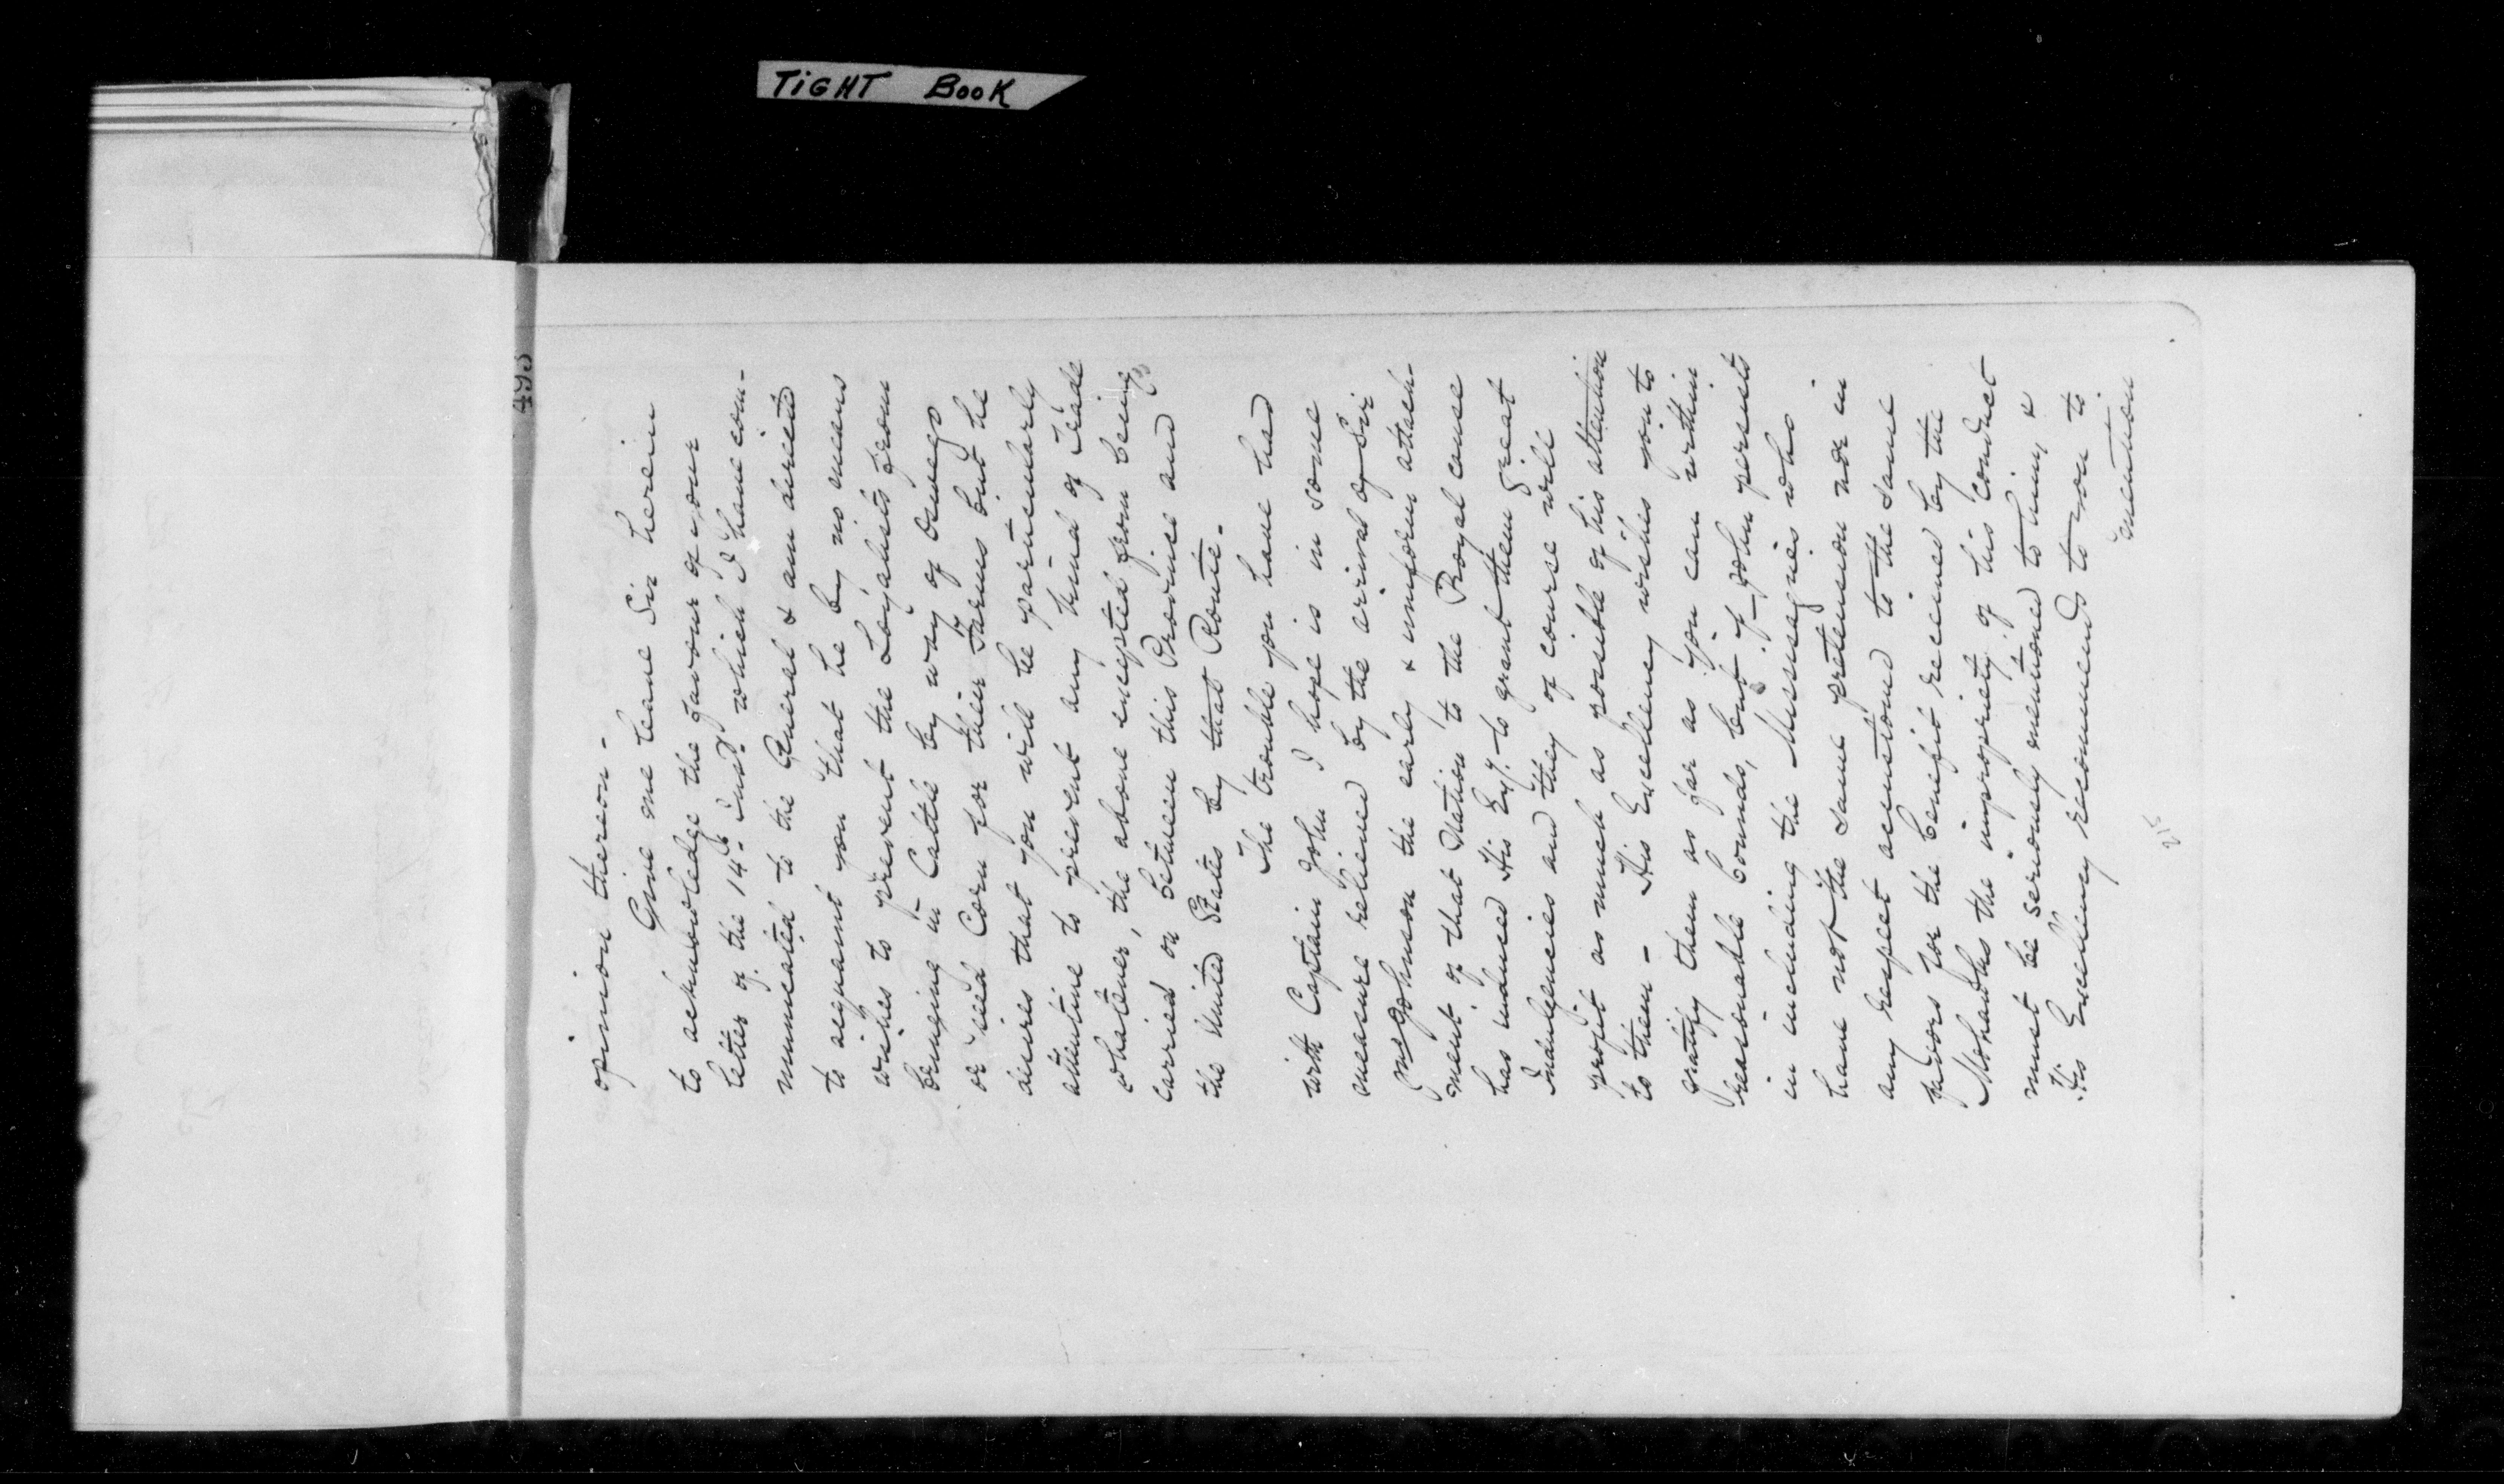 TIGHT BOOK
493
opinion thereon -
Give me leave Sir herein
to acknowledge the favour of your
letter of the 14th Inst. which I have com-
municated to the General & am directed
to acquaint you that he by no means
wishes to prevent the Loyalists from
bringing in Cattle by way of Oswego
or seed Corn for their Farms but he
desires that you will be particularly
attentive to prevent any kind of Trade
whatever, the above excepted from being
carried on between this Province and
the United States by that Route.
The trouble you have had
with Captain John I hope is in some
measure relieved by the arrival of Sir
Jno Johnson the early & uniform attach-
ment of that Nation to the Royal cause
has induced His Exy. to grant them great
Indulgencies and they of course will
profit as much as possible of his attention
to them - His Excellency wishes you to
gratify them as far as you can within
reasonable bounds, but if John persists
in including the Messesagnes who
have not the same pretension nor in
any respect accustomed to the same
favors for the benefit received by the
Mohawks the impropriety of his conduct
must be seriously mentioned to him, &
His Excellency recommends to you to
mention